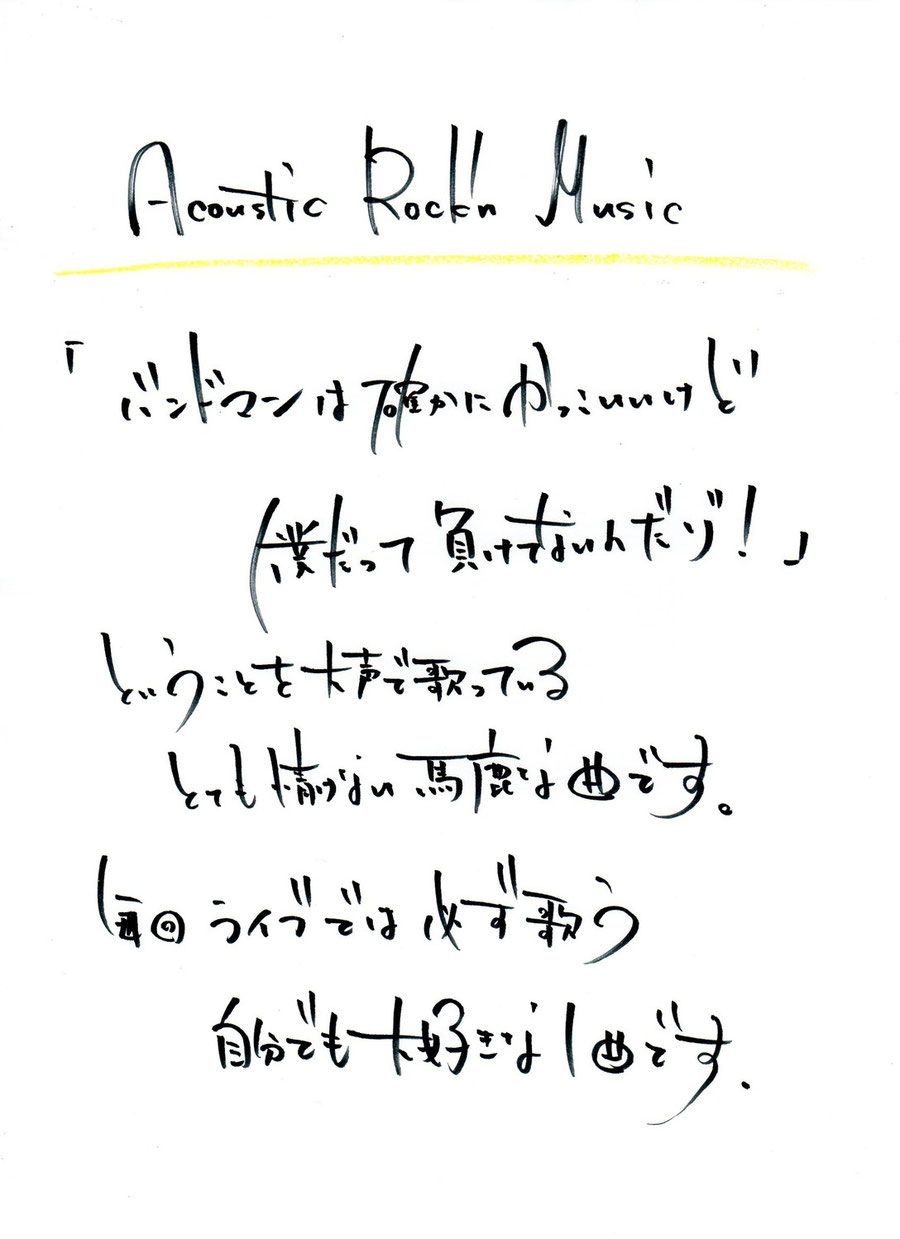 Acoustic Rock'n Music
「バンドマンは確かにかっこいいけど
僕だって負けてないんだゾ！」
ということを大声で歌っている
とても情けない馬鹿な曲です。
毎回ライブでは必ず歌う
自分でも大好きな1曲です.